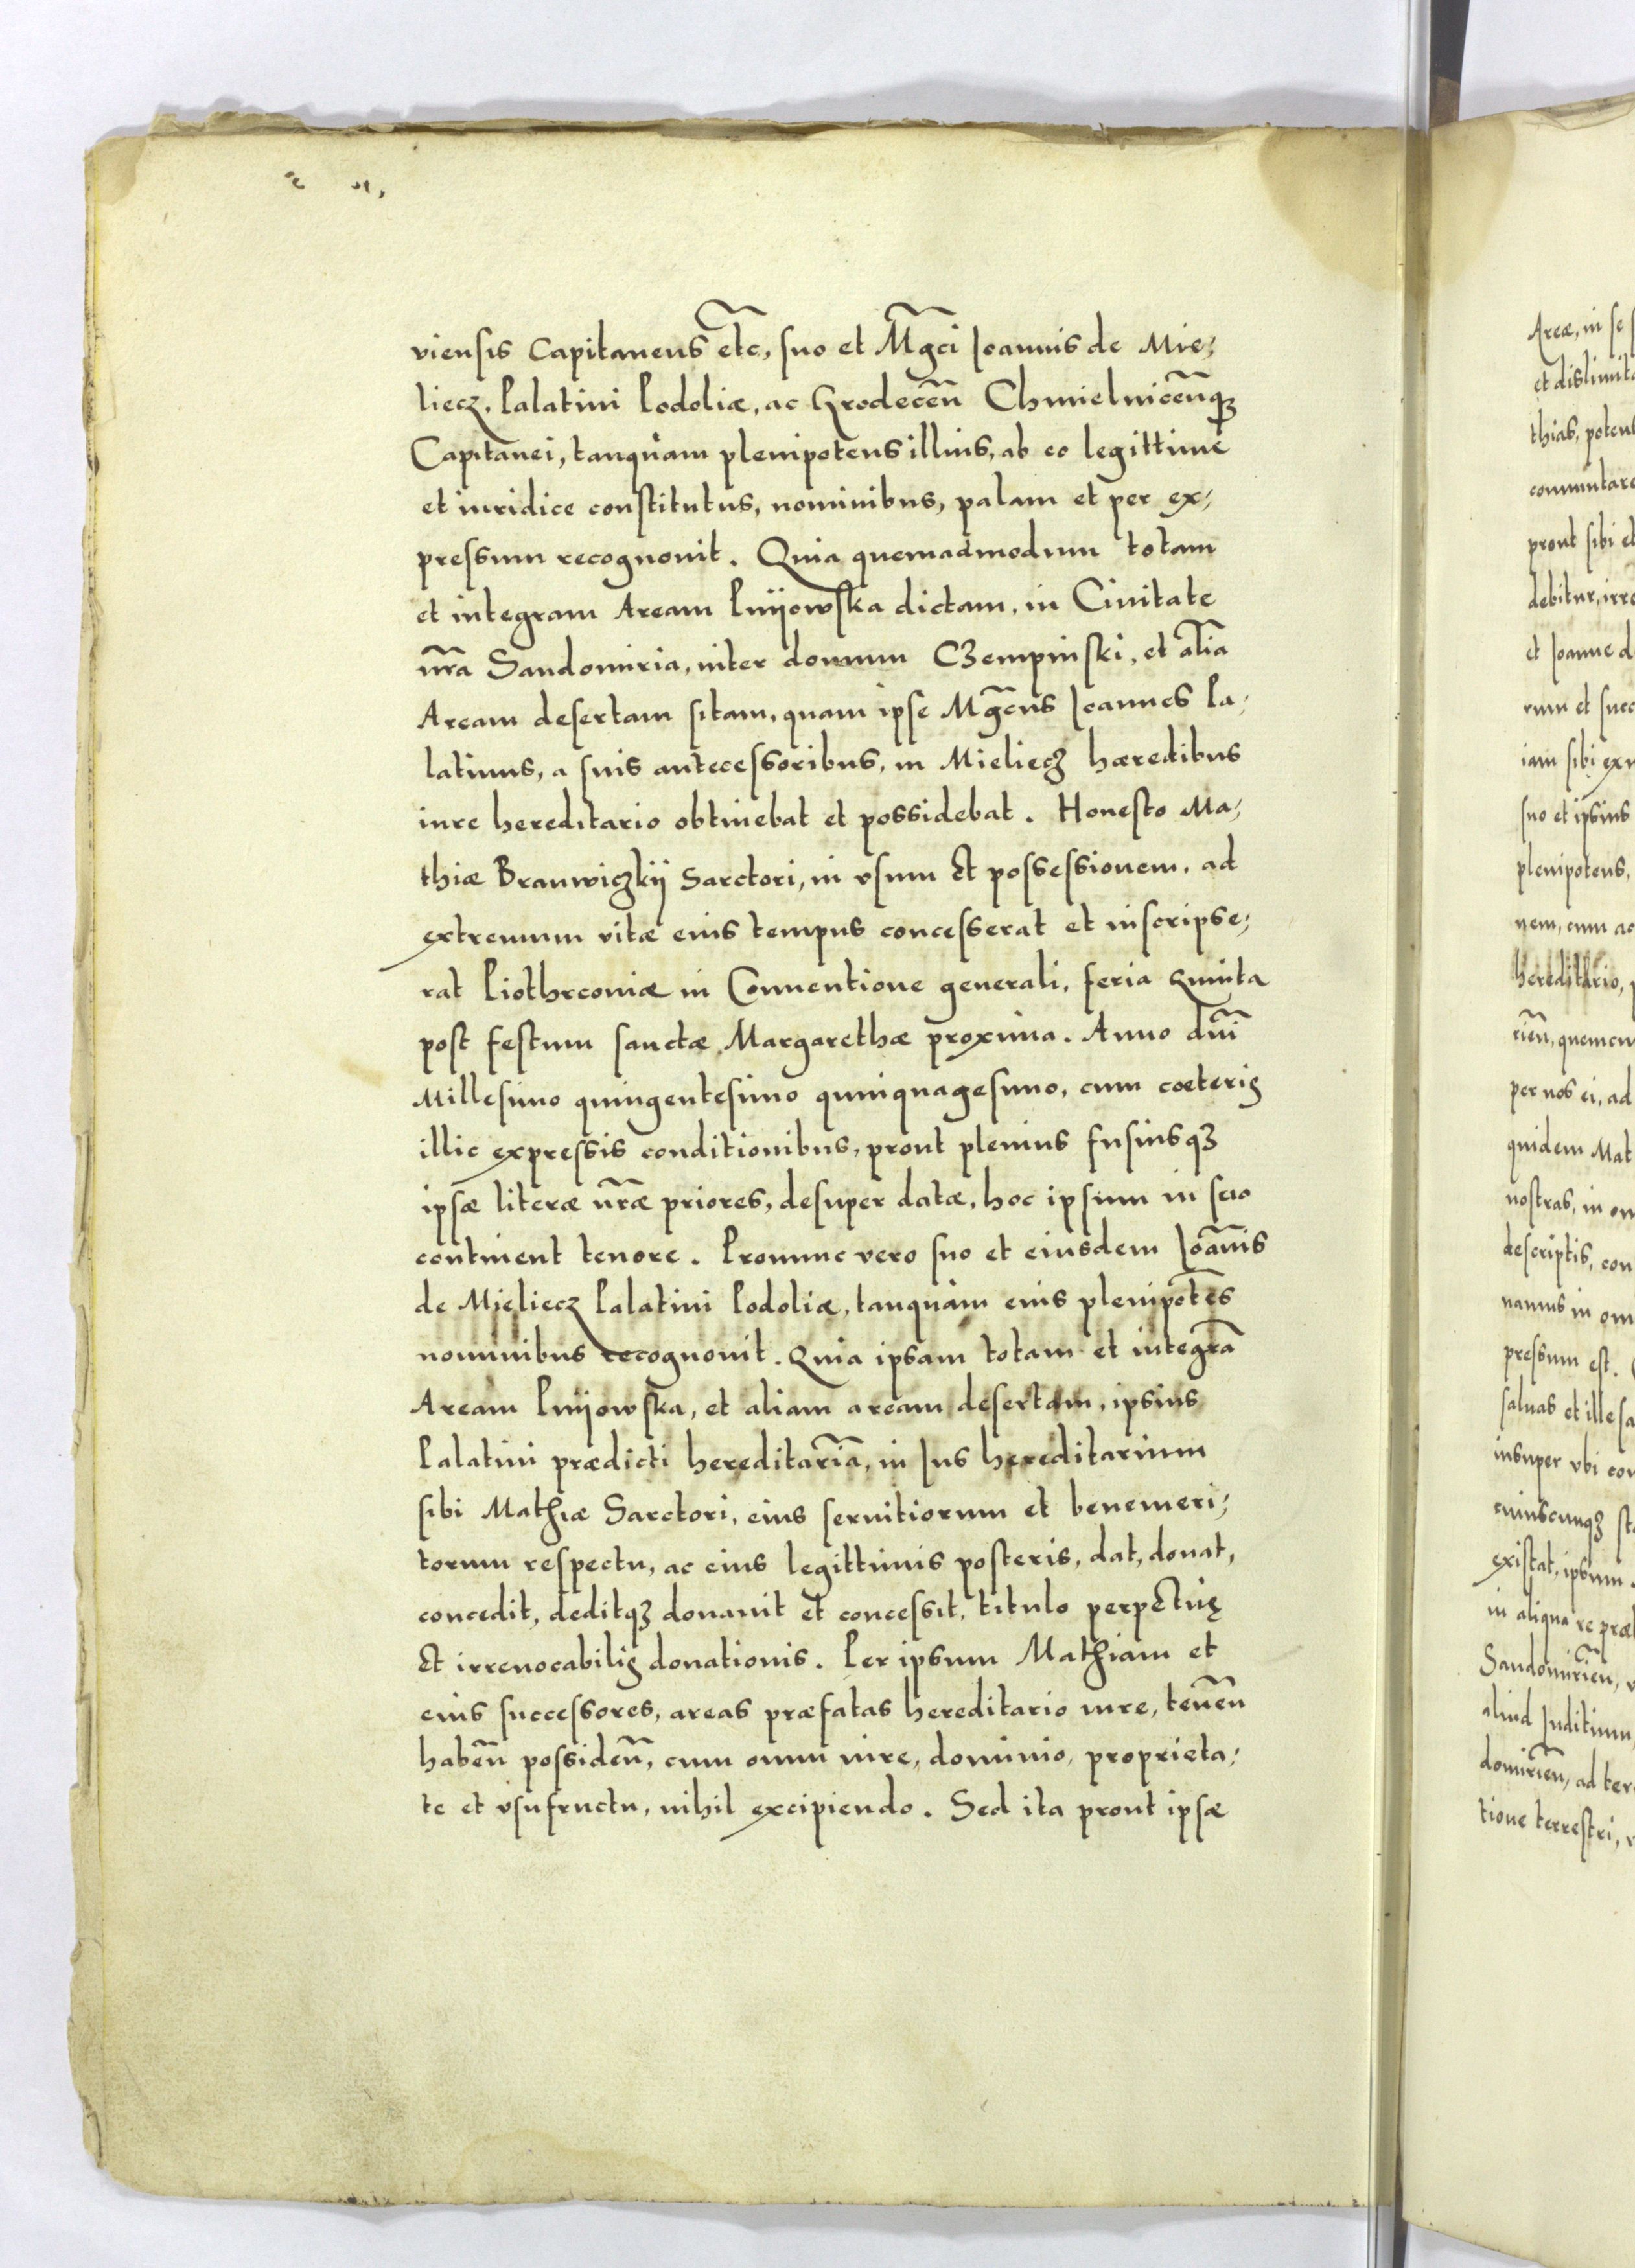 viensis Capitaneus etc̃, suo et Mg̃ci Ioannis de Mie⸗
liecz, Palatini Podoliæ, ac Grodecen̄ Chmielnicen̄qꝫ
Capitanei, tanquam plenipotens illius, ab eo legittime
et iuridice constitutus, nominibus, palam et per ex⸗
pressum recognouit. Quia quemadmodum totam
et integram Aream Pnijowska dictam, in Ciuitate
nr̃a Sandomiria, inter domum CZempinski, et alĩa
Aream desertam sitam, quam ipse Mg̃cus Ioannes Pa⸗
latinus, a suis antecessoribus, in Mieliecz hæredibus
iure hereditario obtinebat et possidebat. Honesto Ma⸗
thiæ Branwiczkij Sarctori, in vsum et possessionem, ad
extremum vitæ eius tempus concesserat et inscripse⸗
rat Piothrconiæ in Conuentione generali, feria quinta
post festum sanctæ Margarethæ proxima. Anno dñi
Millesimo quingentesimo quinquagesimo, cum cœteris
illic expressis conditionibus, prout plenius fusiusqꝫ
ipsæ literæ nr̃æ priores, desuper datæ, hoc ipsum in suo
continent tenore. Pronunc vero suo et eiusdem Ioãnis
de Mieliecz Palatini Podoliæ, tanquam eius plenipotẽs
nominibus recognouit. Quia ipsam totam et integrã
Aream Pnijowska, et aliam aream desertam, ipsius
Palatini prædicti hereditariã, in Ius hereditarium
sibi Mathiæ Sarctori, eius seruitiorum et benemeri⸗
torum respectu, ac eius legittimis posteris, dat, donat,
concedit, deditqꝫ donauit et concessit, titulo perpetuę
et irreuocabilis donationis. Per ipsum Mathiam et
eius successores, areas præfatas hereditario iure, tenen̄
haben̄ possiden̄, cum omni iure, dominio, proprieta⸗
te et vsufructu, nihil excipiendo. Sed ita prout ipsæ
Areæ, in se
et dislimit
thias, poten
commutare
prout sibi et
debitur, irre
et Ioanne d
rum et succ
iam sibi ex
suo et ipsius
plenipotens,
nem, cum ac
hereditario,
rien̄, quemcu
per nos ei, ad
quidem Mat
nostras, in om
descriptis, con
namus in om
pressum est.
saluas et illesa
insuper vbi con
cuiuscunqꝫ st
existat, ipsum
in aliqua re præ
Sandomirien̄,
aliud Iuditium
domirien̄, ad ter
tione terrestri,